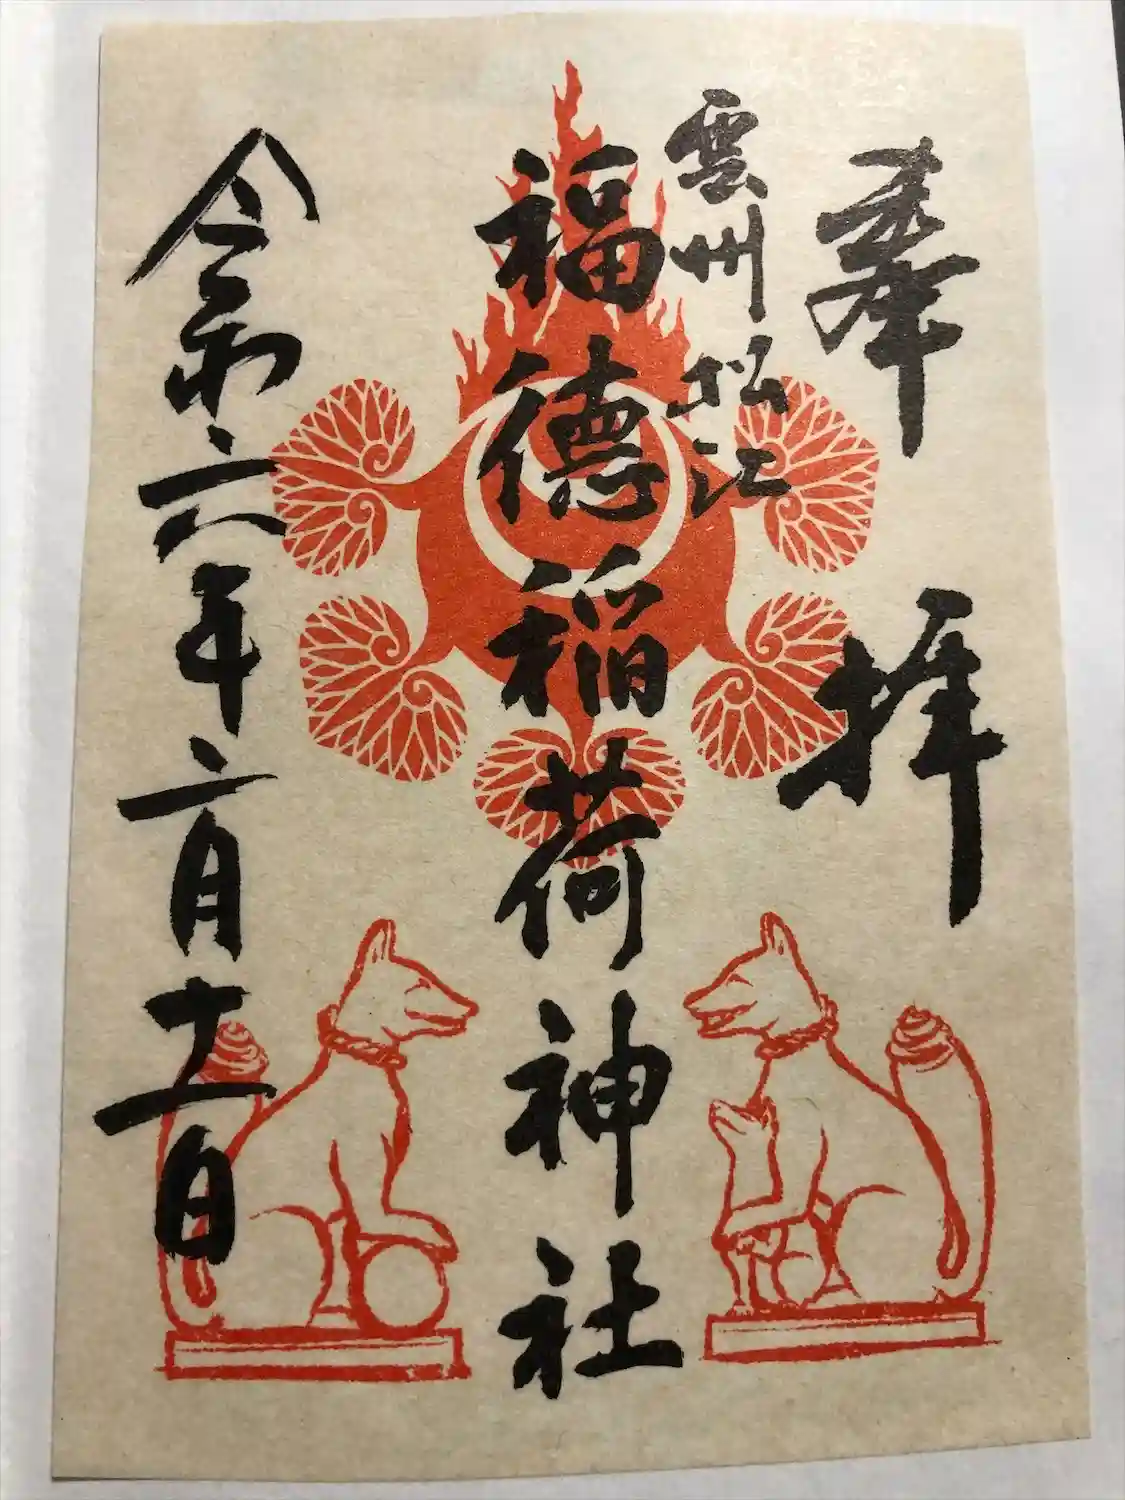 奉拝
雲州松江
福徳稲荷神社
令和六年二月十二日